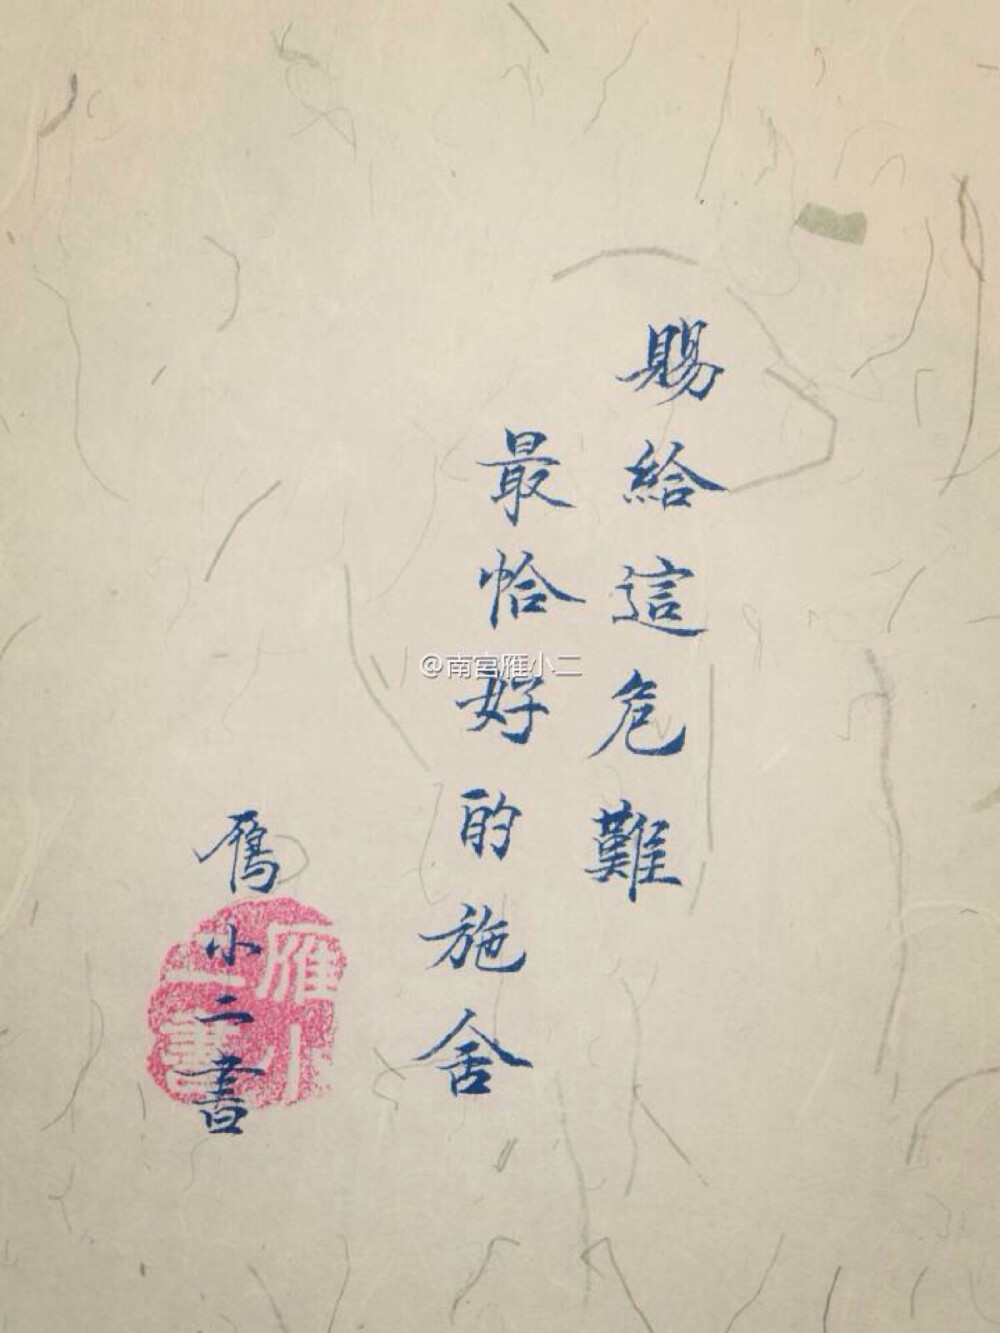 賜給這危難
最恰好的施舍
鴈小二書
雁小二書
@南宫雁小二